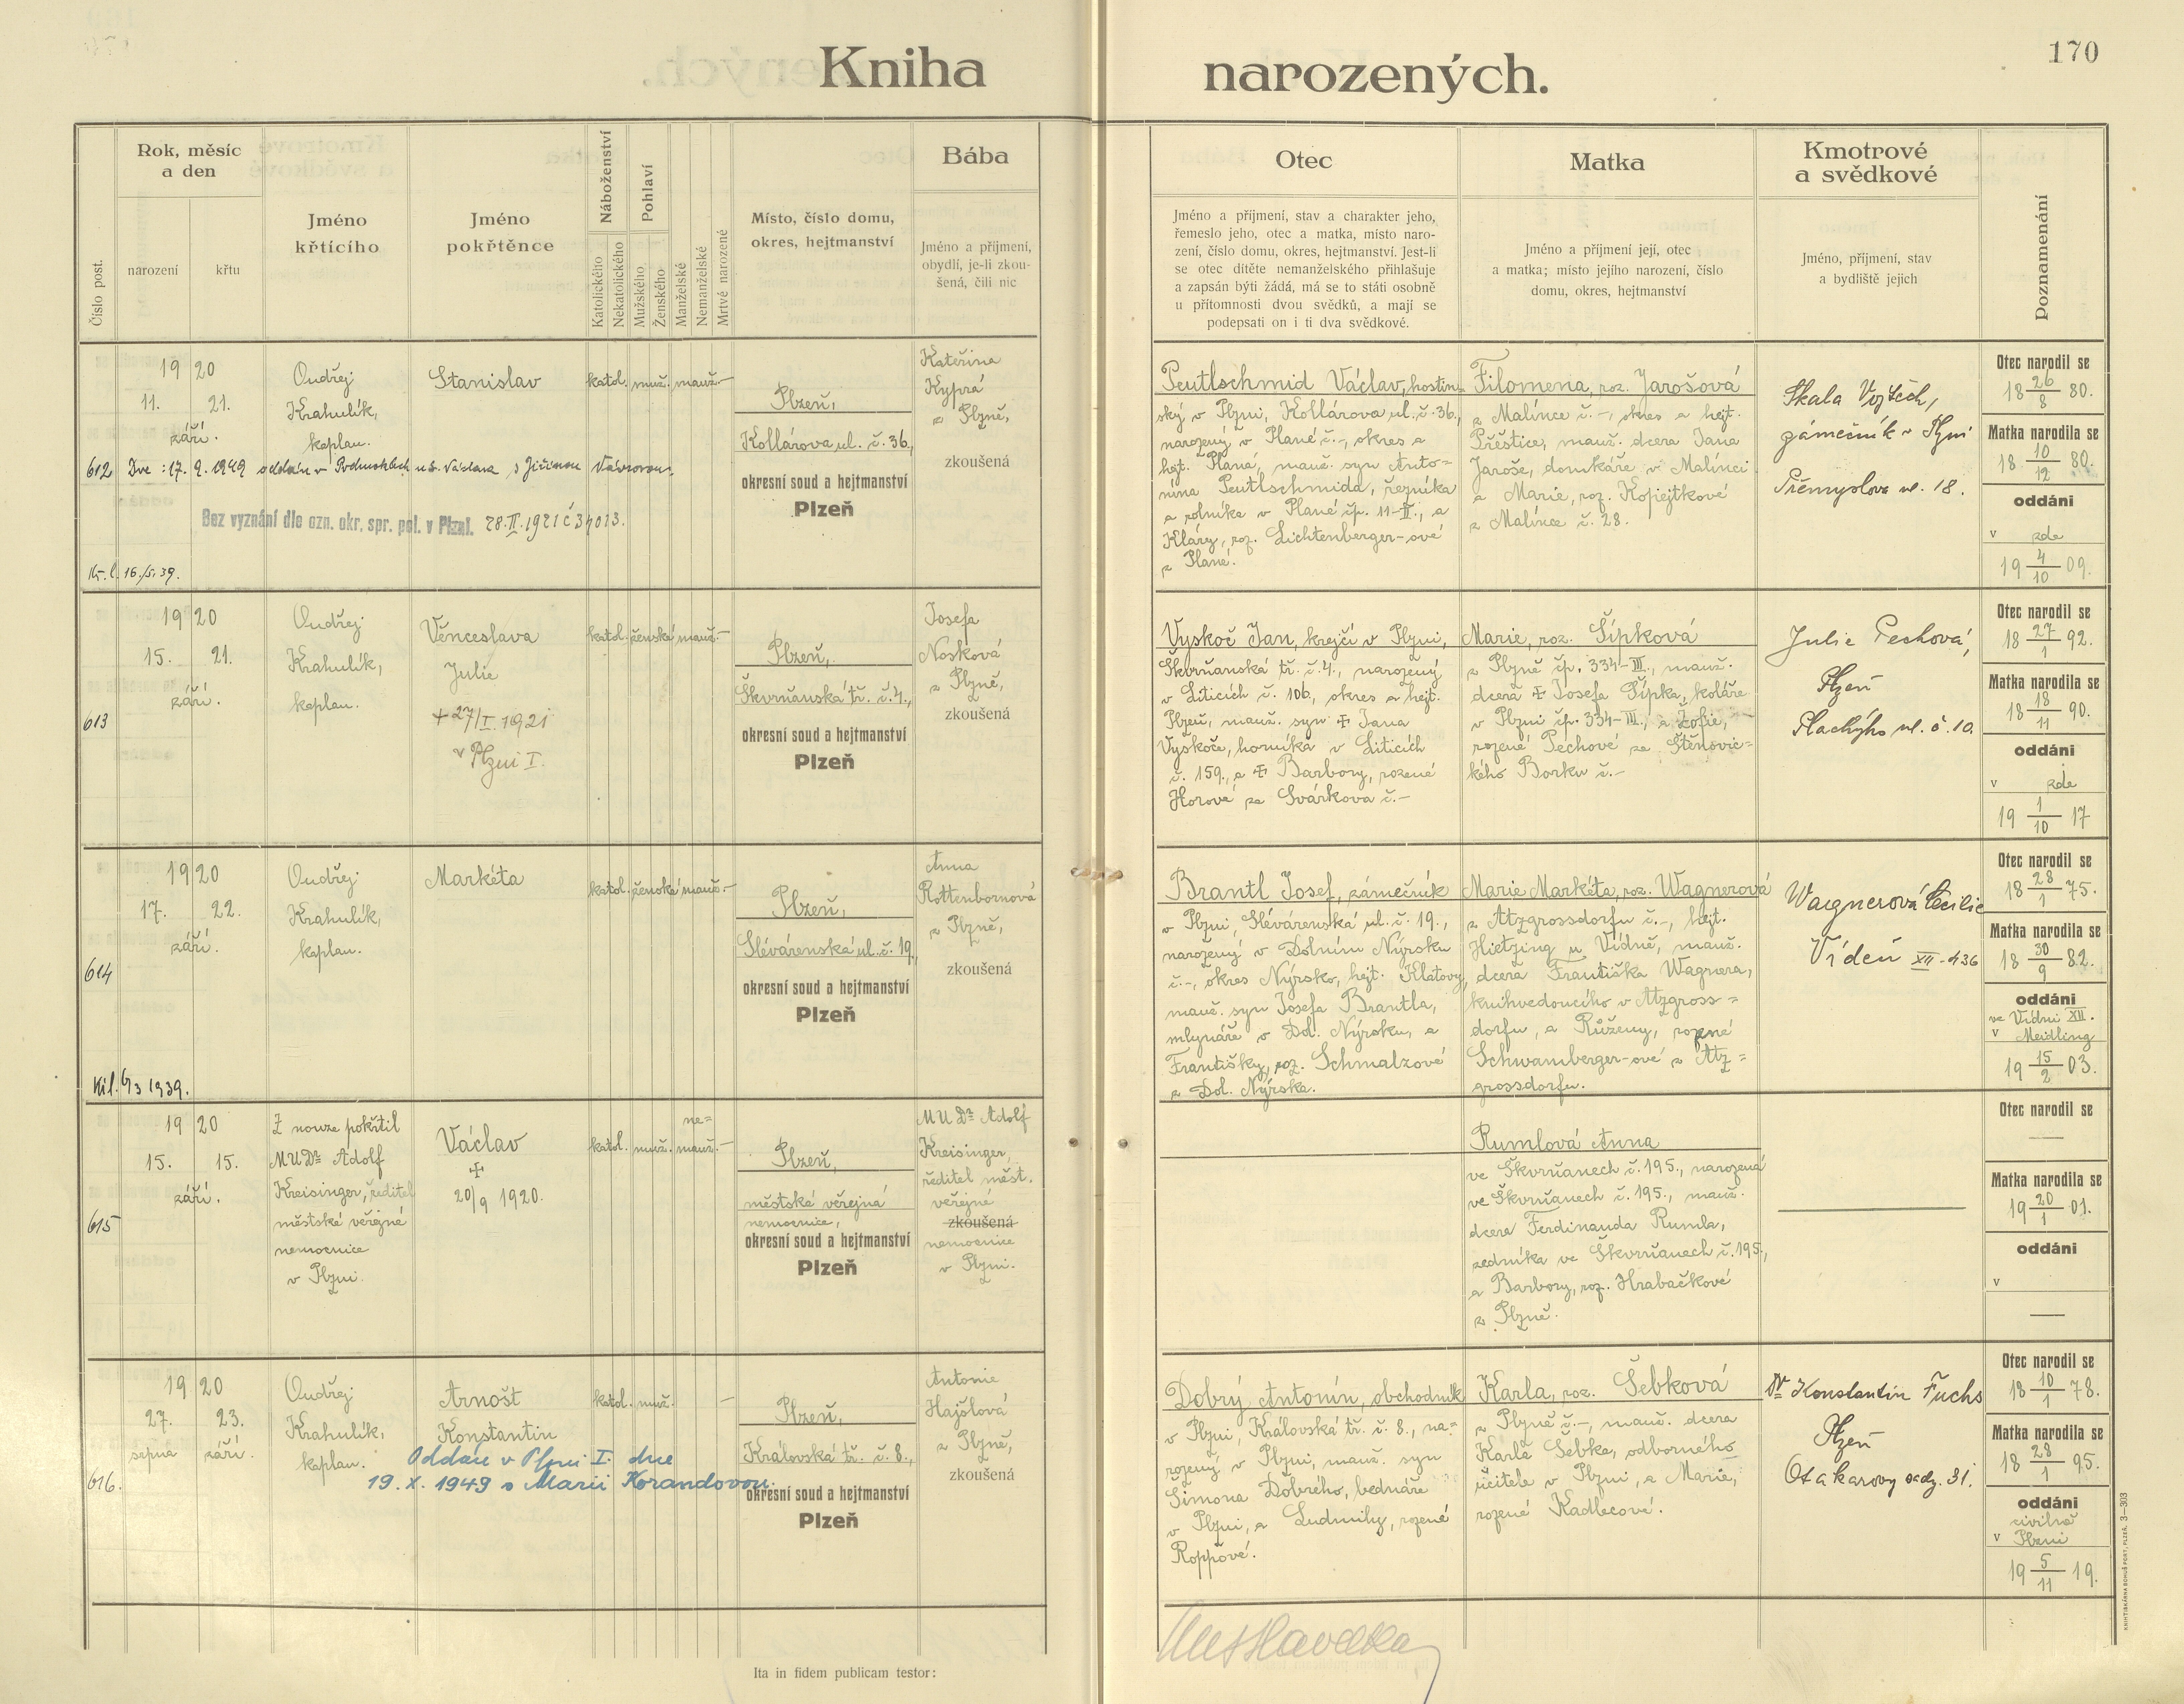 170
Kniha narozených.
Číslo post.
Rok, měsíc
a den
narození
křtu
Jméno
křtícího
Jméno
pokřtěnce
Náboženství
Katolického
Nekatolického
Pohlaví
Mužského
Ženského
Manželské
Nemanželské
Mrtvě narozené
Místo, číslo domu,
okres, hejtmanství
Bába
Jméno a příjmení,
obydlí, je-li zkou-
šená, čili nic
Otec
Jméno a příjmení, stav a charakter jeho,
řemeslo jeho, otec a matka, místo naro-
zení, číslo domu, okres, hejtmanství. Jest-li
se otec dítěte nemanželského přihlašuje
a zapsán býti žádá, má se to státi osobně
u přítomnosti dvou svědků, a mají se
podepsati on i ti dva svědkové.
Matka
Jméno a příjmení její, otec
a matka; místo jejího narození, číslo
domu, okres, hejtmanství
Kmotrové
a svědkové
Jméno, příjmení, stav
a bydliště jejich
Poznamenání
612
1920
11. 21.
září.
Ondřej
Krahulík,
kaplan.
Stanislav
katol. muž. manž. —
Dne 17. 9. 1949 oddán v Podmoklech u S. Václava s Jiřinou Vávrovou.
Bez vyznání dle ozn. okr. spr. pol. v Plzni. 28. II. 1921 č 34013.
Kř. l. 16./5. 39.
Plzeň,
Kollárova ul. č. 36.,
okresní soud a hejtmanství
Plzeň
Kateřina
Kyprá
z Plzně,
zkoušená
Peutlschmid Václav, hostin-
ský v Plzni, Kollárova ul. č. 36.,
narozený v Plané č. –, okres a
hejt. Planá, manž. syn Anto=
nína Peutlschmida, řezníka
a rolníka v Plané čp. 11-II., a
Kláry, roz. Lichtenberger-ové
z Plané.
Filomena, roz. Jarošová
z Malince č. –, okres a hejt.
Přeštice, manž. dcera Jana
Jaroše, domkáře v Malinci
a Marie, roz. Kopejtkové
z Malince č. 28.
Skala Vojtěch,
zámečník v Plzni
Přemyslova ul. 18.
Otec narodil se
18 26/8 80.
Matka narodila se
18 10/12 80.
oddáni
v zde
19 4/10 09.
613
1920
15. 21.
září.
Ondřej
Krahulík,
kaplan.
Věnceslava
Julie
+ 27/I. 1921
v Plzni I.
katol. ženské manž. —
Plzeň,
Škvrňanská tř. č. 4.,
okresní soud a hejtmanství
Plzeň
Josefa
Nosková
z Plzně,
zkoušená
Vyskoč Jan, krejčí v Plzni,
Škvrňanská tř. č. 4., narozený
v Liticích č. 106, okres a hejt.
Plzeň, manž. syn + Jana
Vyskoče, horníka v Liticích
č. 159., a + Barbory, rozené
Horové ze Svárkova č. –
Marie, roz. Šípková
z Plzně čp. 334-III., manž.
dcera + Josefa Šípka, koláře
v Plzni čp. 334-III., a Žofie,
rozené Pechové ze Štěnovic=
kého Borku č. –
Julie Pechová,
Plzeň
Plachýho ul. č. 10.
Otec narodil se
18 27/1 92.
Matka narodila se
18 18/11 90.
oddáni
v zde
19 1/10 17
614
1920
17. 22.
září.
Ondřej
Krahulík,
kaplan.
Markéta
katol. ženské manž. —
Plzeň,
Slévárenská ul. č. 19.,
okresní soud a hejtmanství
Plzeň
Anna
Rottenbornová
z Plzně,
zkoušená
Brantl Josef, zámečník
v Plzni, Slévárenská ul. č. 19.,
narozený v Dolním Nýrsku
č. –, okres Nýrsko, hejt. Klatovy,
manž. syn Josefa Brantla,
mlynáře v Dol. Nýrsku, a
Františky, roz. Schmalzové
z Dol. Nýrska.
Marie Markéta, roz. Wagnerová
z Atzgrossdorfu č. –, hejt.
Hietzing u Vídně, manž.
dcera Františka Wagnera,
knihvedoucího v Atzgross=
dorfu, a Růženy, rozené
Schwamberger-ové z Atz=
grossdorfu.
Wagnerová Cecilie
Vídeň XII-436
Otec narodil se
18 28/1 75.
Matka narodila se
18 30/9 82.
oddáni
ve Vídni XII.
v Meidling
19 15/2 03.
615
1920
15. 15.
září.
Z nouze pokřtil
MUDr Adolf
Kreisinger, ředitel
městské veřejné
nemocnice
v Plzni.
Václav
+
20/9 1920.
katol. muž. ne=
manž. —
Plzeň,
městská veřejná
nemocnice,
okresní soud a hejtmanství
Plzeň
MUDr Adolf
Kreisinger,
ředitel měst.
veřejné
zkoušená
nemocnice
v Plzni.
Rumlová Anna
ve Škvrňanech č. 195., narozená
ve Škvrňanech č. 195., manž.
dcera Ferdinanda Rumla,
zedníka ve Škvrňanech č. 195.,
a Barbory, roz. Hrabačkové
z Plzně.
Otec narodil se
—
Matka narodila se
19 20/1 01.
oddáni
v
—
616.
1920
27. 23.
srpna září.
Ondřej
Krahulík,
kaplan.
Arnošt
Konstantin
Oddán v Plzni I. dne
19. X. 1949 s Marií Korandovou.
katol. muž. —
Plzeň,
Královská tř. č. 8.,
okresní soud a hejtmanství
Plzeň
Antonie
Hajšlová
z Plzně,
zkoušená
Dobrý Antonín, obchodník
v Plzni, Královská tř. č. 8., na=
rozený v Plzni, manž. syn
Šimona Dobrého, bednáře
v Plzni, a Ludmily, rozené
Roppové.
Karla, roz. Šebková
z Plzně č. –, manž. dcera
Karla Šebka, odborného
učitele v Plzni, a Marie,
rozené Kadlecové.
Dr Konstantin Fuchs
Plzeň
Otakarovy sady. 31.
Otec narodil se
18 10/1 78.
Matka narodila se
18 28/1 95.
oddáni
civilně
v Plzni
19 5/11 19.
Ita in fidem publicam testor:
KNIHTISKÁRNA BOHUŠ PORT, PLZEŇ. 3—303